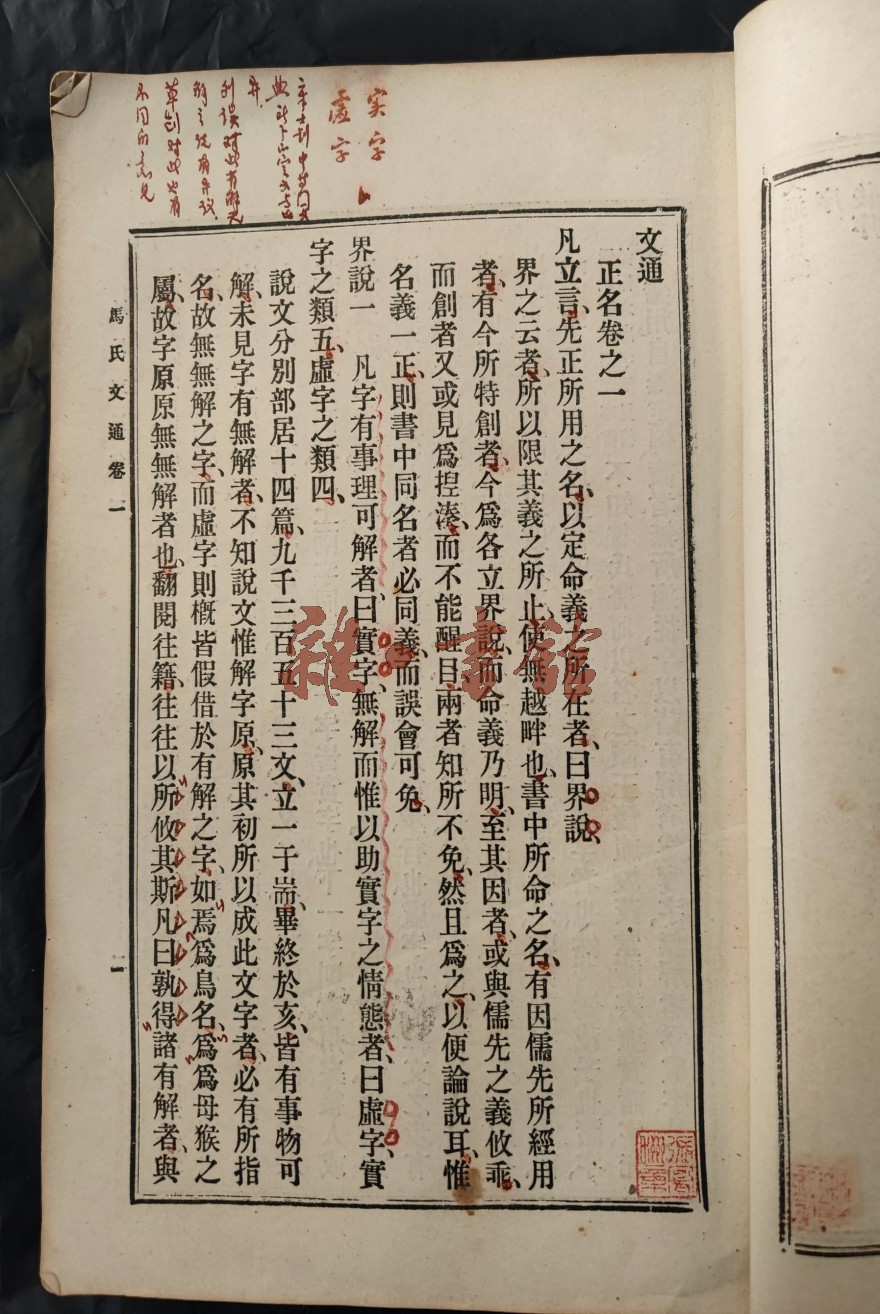 实字
虚字
文通
正名卷之一
凡立言、先正所用之名、以定命義之所在者、曰界說、
界之云者、所以限其義之所止、使無越畔也、書中所命之名、有因儒先所經用
者、有今所特創者、今爲各立界說、而命義乃明、至其因者、或與儒先之義攸乖、
而創者又或見爲揑湊、而不能醒目、兩者知所不免、然且爲之、以便論說耳、惟
名義一正、則書中同名者必同義、而誤會可免、
界說一 凡字有事理可解者、曰實字、無解而惟以助實字之情態者、曰虛字、實
字之類五、虛字之類四、
說文分別部居十四篇、九千三百五十三文、立一于耑、畢終於亥、皆有事物可
解、未見字有無解者、不知說文惟解字原、原其初所以成此文字者、必有所指
名、故無無解之字、而虛字則槪皆假借於有解之字、如焉爲鳥名、爲爲母猴之
屬、故字原原無無解者也、翻閱往籍、往往以所攸其斯凡曰孰得諸有解者、與
馬氏文通卷一
一
雜·書館